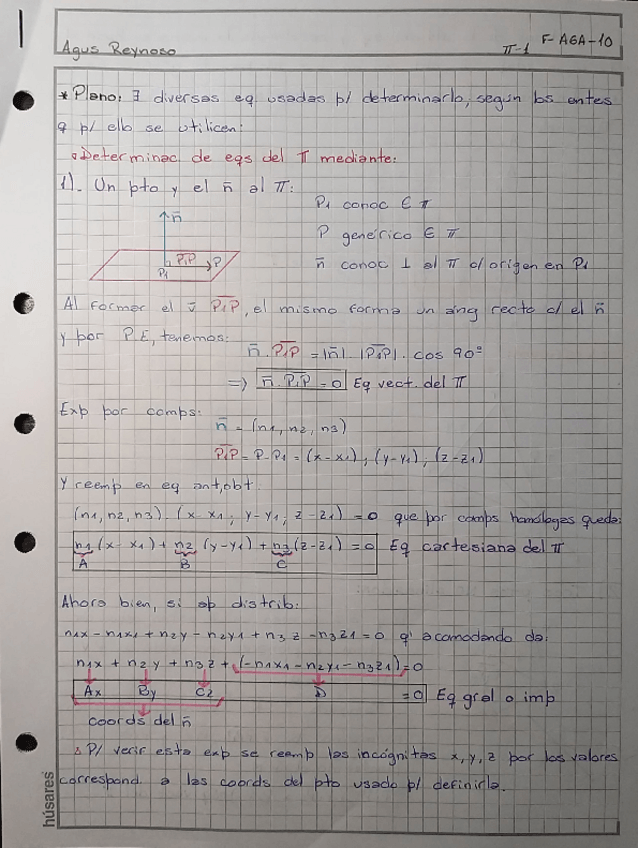 Agus Reynoso
π-1 F-AGA-10
* Plano: ∃ diversas eq usadas p/ determinarlo, según los entes
q p/ ello se utilicen:
Determinac de eqs del π mediante:
1). Un pto y el n̄ al π:
n̄
P₁P P
P₁
P₁ conoc ∈ π
P genérico ∈ π
n̄ conoc ⊥ al π c/ origen en P₁
Al formar el v̄ P₁P, el mismo forma un áng recto c/ el n̄
y por P.E, tenemos:
n̄ . P₁P = |n̄| . |P₁P| . cos 90º
=> n̄ . P₁P = 0 Eq vect. del π
Exp por comps:
n̄ = (n1, n2, n3)
P₁P = P-P₁ = (x-x₁), (y-y₁), (z-z₁)
Y reemp en eq ant, obt.
(n1, n2, n3) . (x-x₁; y-y₁; z-z₁) = 0 que por comps homólogas queda:
n1 (x-x₁) + n2 (y-y₁) + n3 (z-z₁) = 0 Eq cartesiana del π
A B C
Ahora bien, si ap distrib:
n1x - n1x₁ + n2y - n2y₁ + n3z - n3z₁ = 0 q' acomodando da:
n1x + n2y + n3z + (-n1x₁ - n2y₁ - n3z₁) = 0
Ax By Cz D = 0 Eq gral o imp
coords del n̄
P/ verif esta exp se reemp las incógnitas x, y, z por los valores
correspond. a las coords del pto usado p/ definirla.
húsares